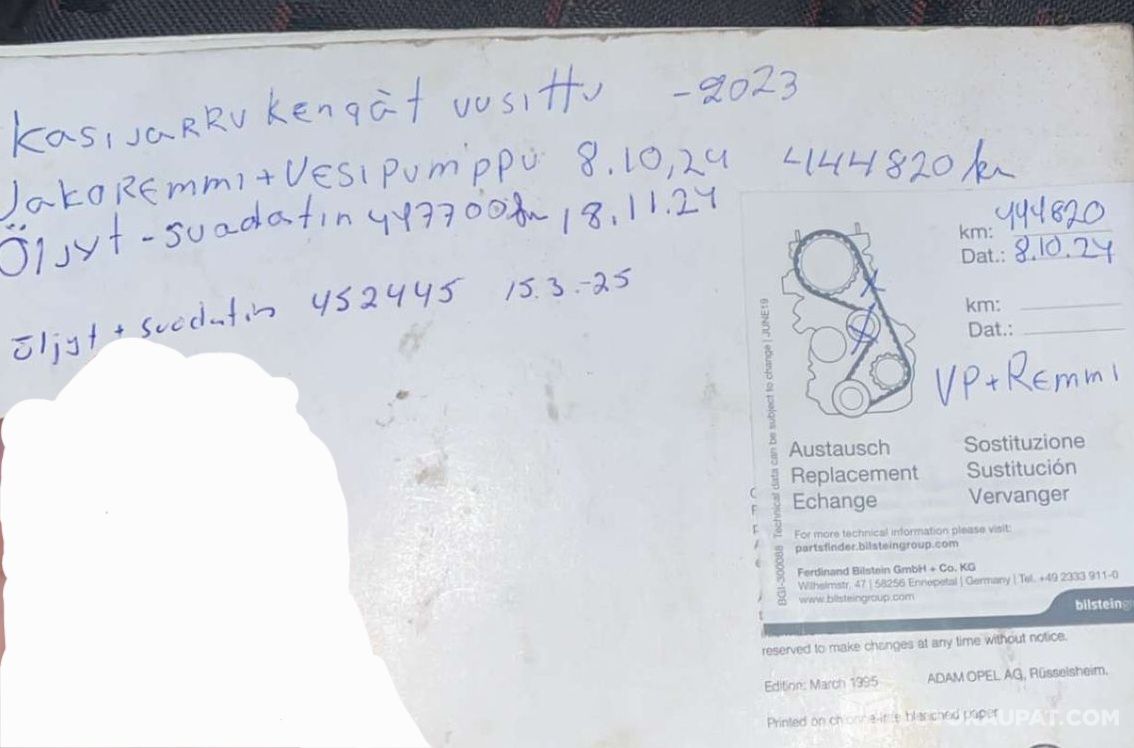 KASIJARRU KENGÄT UUSITTU -2023
JAKOREMMI + VESIPUMPPU 8.10,24 444820 km
ÖlJyt - suadatin 447700km 18.11.24
öljyt + suodatin 452445 15.3.-25
km: 444820
Dat.: 8.10.24
km:
Dat.:
VP + REMMI
Austausch
Replacement
Echange
Sostituzione
Sustitución
Vervanger
For more technical information please visit:
partsfinder.bilsteingroup.com
Ferdinand Bilstein GmbH + Co. KG
Wilhelmstr. 47 | 58256 Ennepetal | Germany | Tel. +49 2333 911-0
www.bilsteingroup.com
BGI-300088 Technical data can be subject to change | JUNE19
bilstein
reserved to make changes at any time without notice.
Edition: March 1995
ADAM OPEL AG, Rüsselsheim.
Printed on chlorine-free blanched paper
AUTOKAUPAT.COM